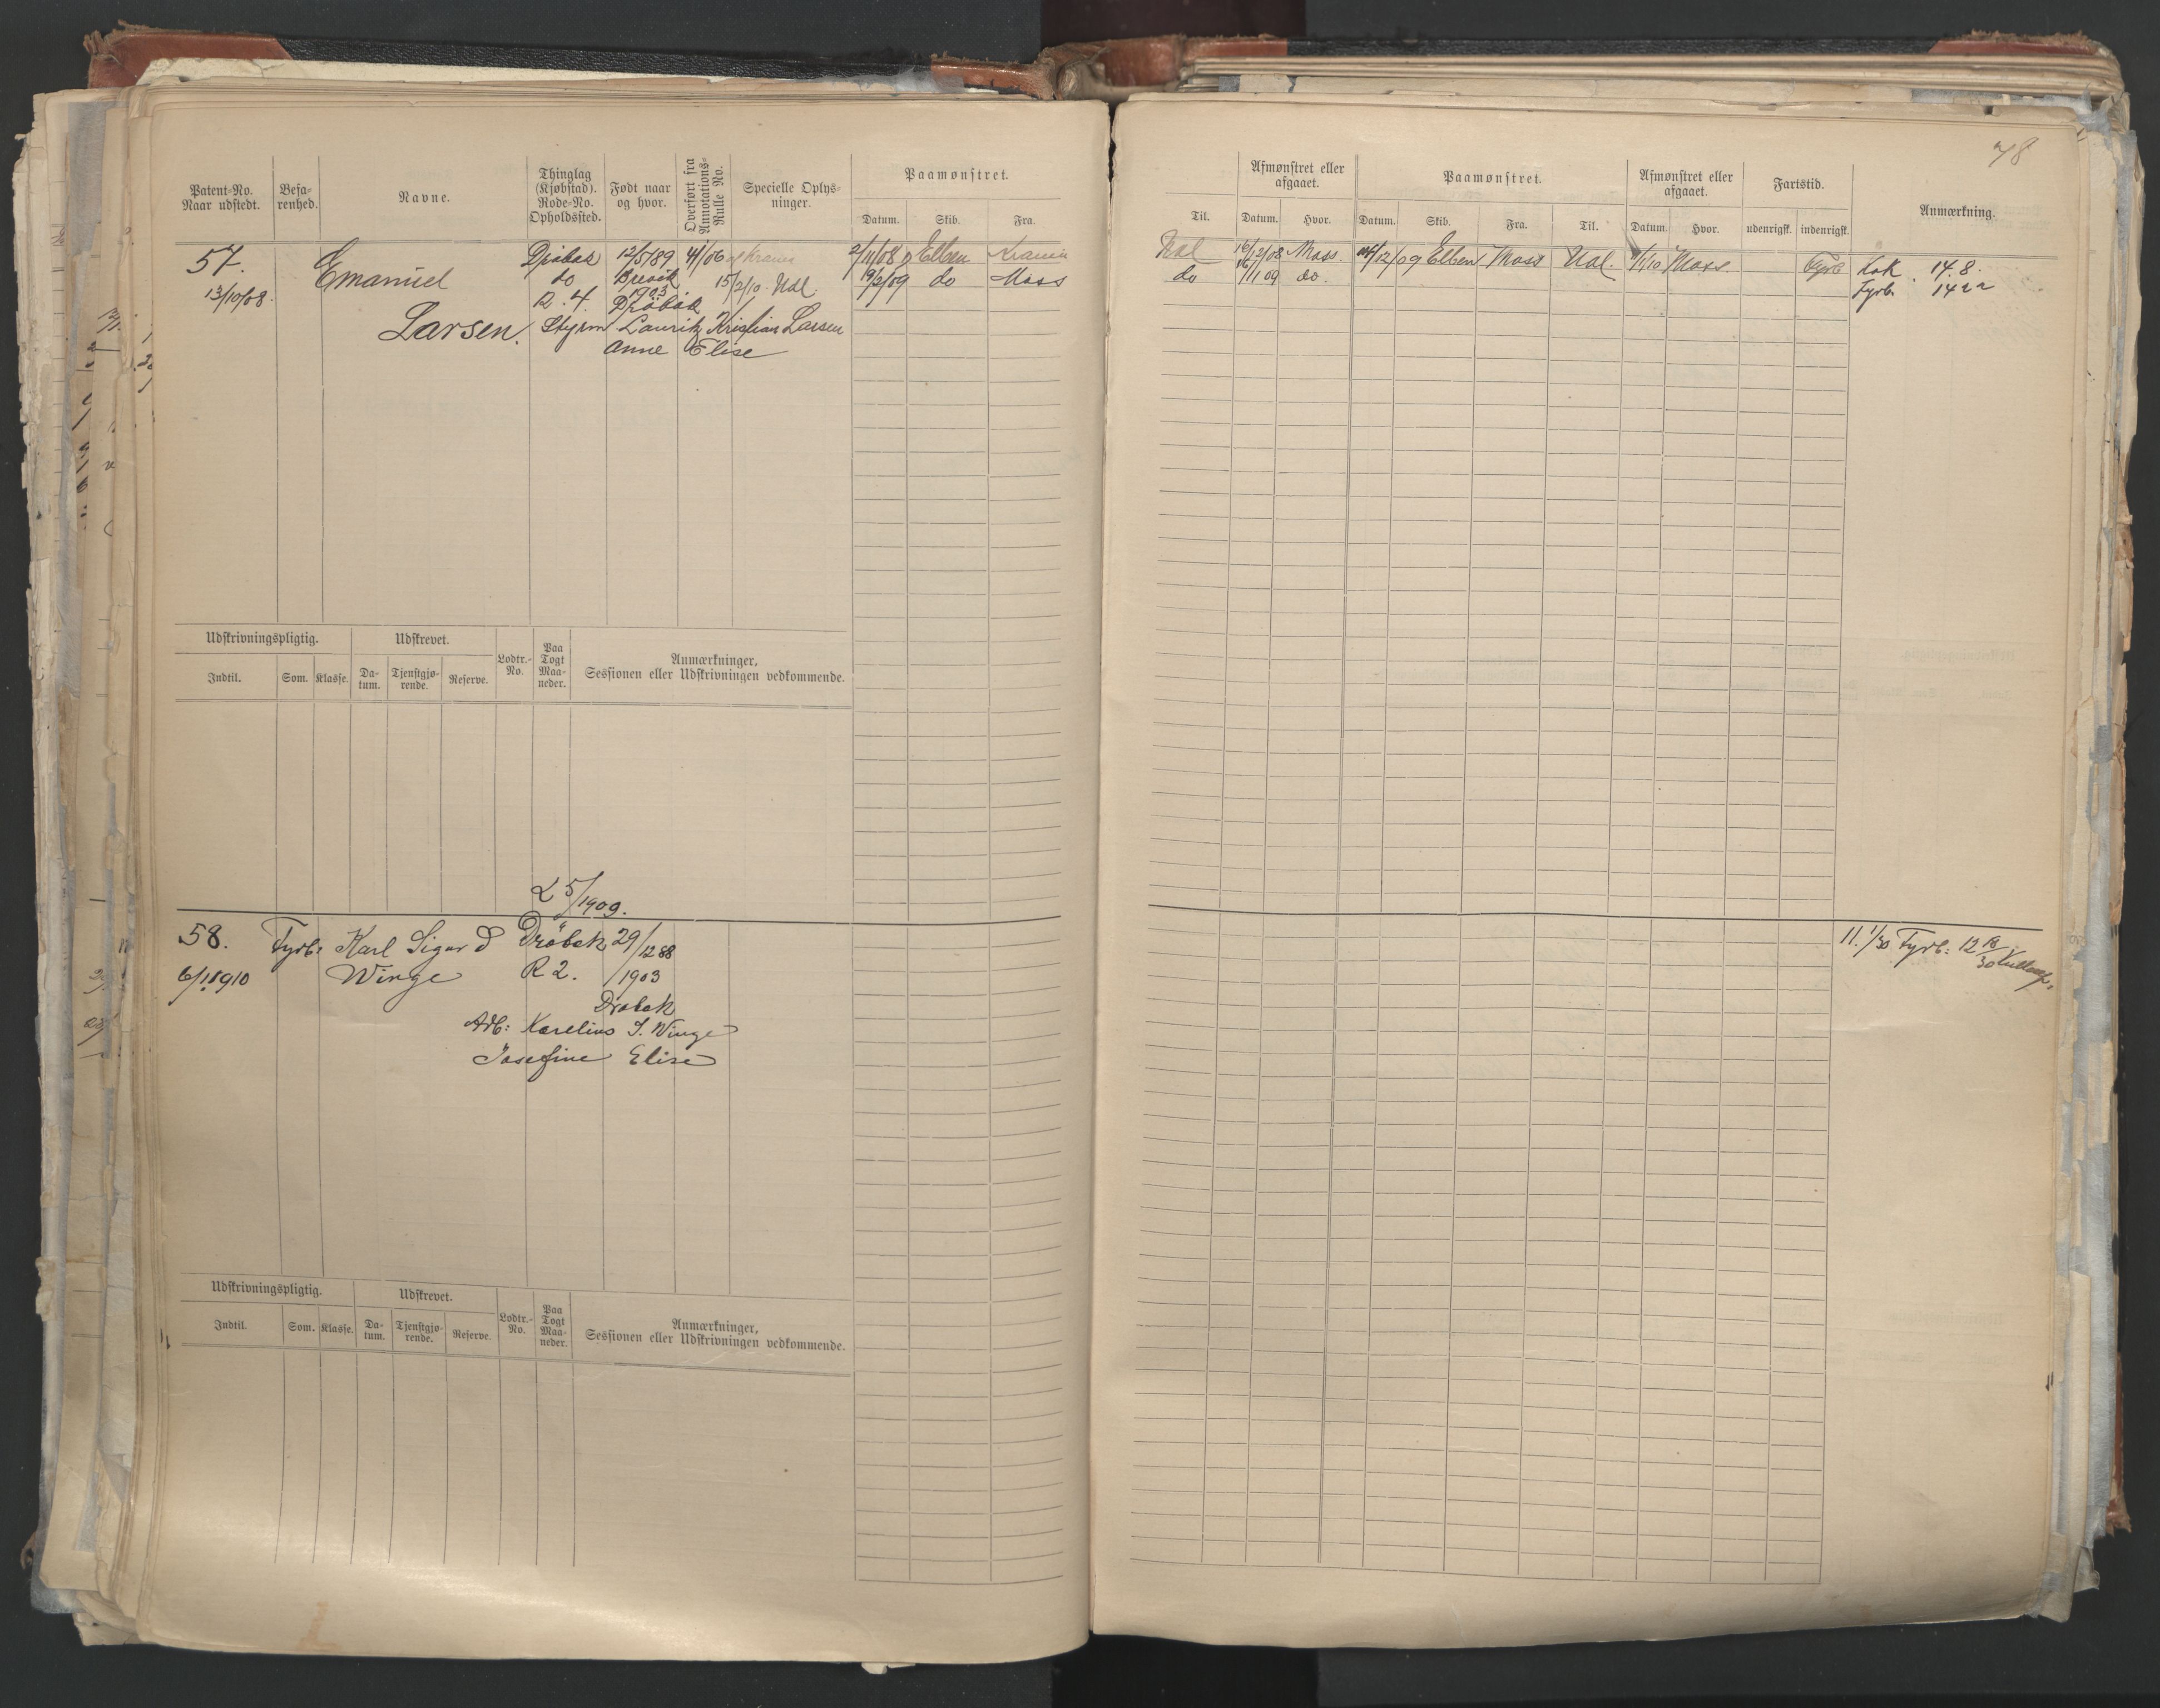 78
Patent-No. Naar udstedt.
Befarenhed.
Navne.
Thinglag (Kjøbstad). Rode-No. Opholdssted.
Født naar og hvor.
Overført fra Annotations-Rulle No.
Specielle Oplysninger.
Paamønstret.
Datum. Skib. Fra.
Til.
Afmønstret eller afgaaet.
Datum. Hvor.
Paamønstret.
Datum. Skib. Fra. Til.
Afmønstret eller afgaaet.
Datum. Hvor.
Fartstid.
udenrigsk. indenrigsk.
Anmærkning.
57. Emanuel Drøbak 12/5/89 41/06 2/11/08 Elben
13/10/08. do 15/2/10. Udl. 19/2/09 do Moss
R. 4. 1903 Drøbak
Larsen. Styrm Lauritz Kristian Larsen
Anne Elise
Udl 16/12/08 Moss. 12/09 Elben Moss Udl. 1/10 Moss Fyrb Kok 14.8.
do 16/11 09 do. Fyrb.
Udskrivningspligtig. Udskrevet. Lodtr.-No. Paa Togt Maaneder. Anmærkninger, Sessionen eller Udskrivningen vedkommende.
Indtil. Som. Klasse. Datum. Tjenstgjørende. Reserve.
5/1909.
58. Fyrb: Karl Sigurd Drøbak 29/12 88
6/1 1910 Winge R 2. /1903
Drøbak
Arb: Karelius S. Winge
Josefine Elise
11. 1/30 Fyrb: 12
Udskrivningspligtig. Udskrevet. Lodtr.-No. Paa Togt Maaneder. Anmærkninger, Sessionen eller Udskrivningen vedkommende.
Indtil. Som. Klasse. Datum. Tjenstgjørende. Reserve.